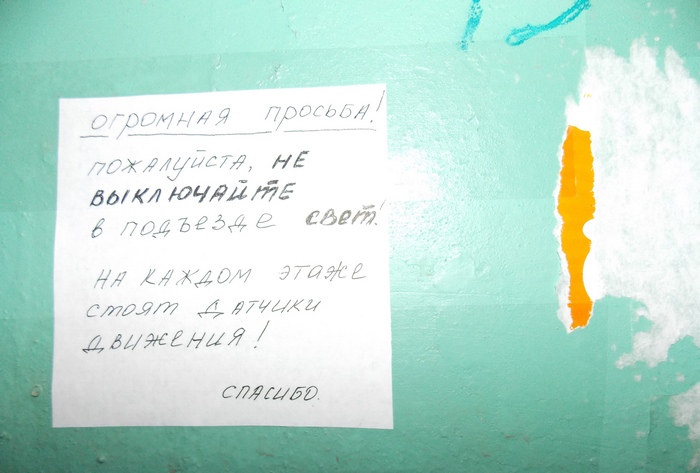 ОГРОМНАЯ ПРОСЬБА!
ПОЖАЛУЙСТА, НЕ
ВЫКЛЮЧАЙТЕ
В ПОДЪЕЗДЕ СВЕТ!
НА КАЖДОМ ЭТАЖЕ
СТОЯТ ДАТЧИКИ
ДВИЖЕНИЯ!
СПАСИБО.